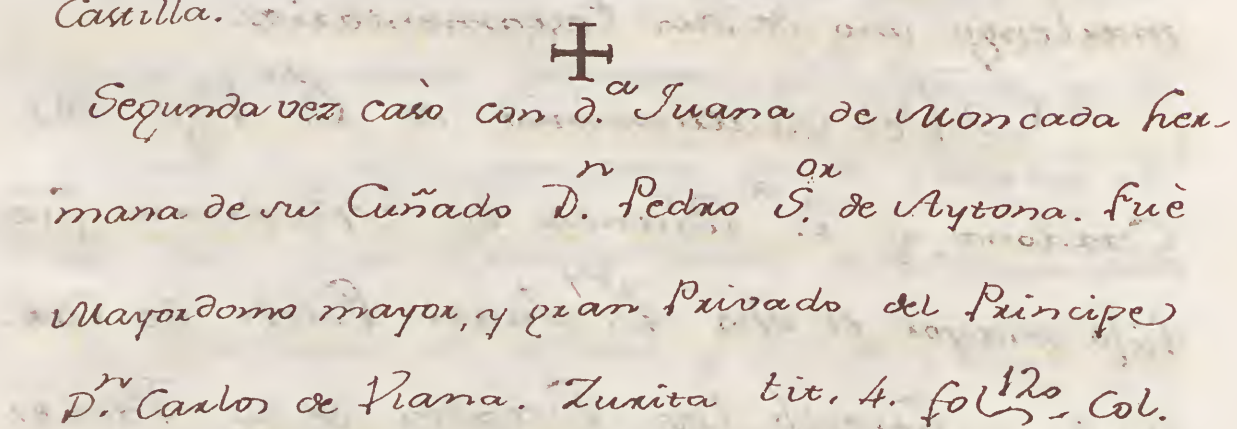 Castilla.
✠
Segunda vez casò con d.ª Juana de Moncada her-
mana de su Cuñado D.ⁿ Pedro S.ᵒʳ de Aytona. fuè
Mayordomo mayor, y gran Privado del Principe
D.ⁿ Carlos de Viana. Zurita tit. 4. fol. 120. Col.